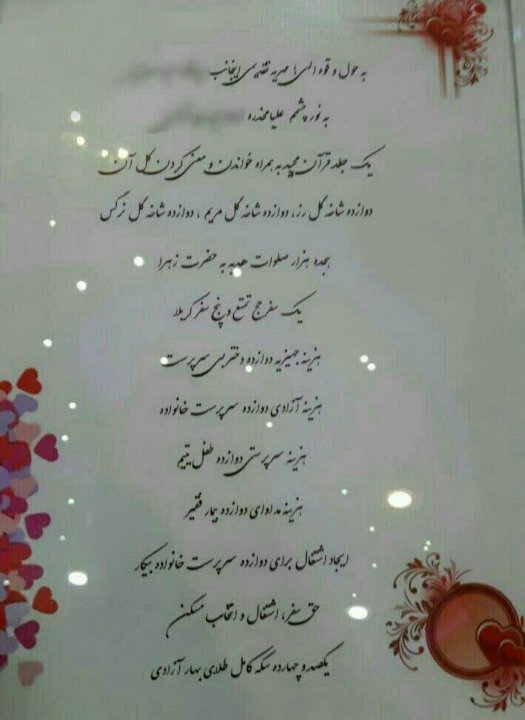 به حول و قوه الهی با مهریه تقدیمی اینجانب
به نور چشم علیامخدره
یک جلد قرآن مجید به همراه خواندن و معنی کردن کل آن
دوازده شاخه گل رز، دوازده شاخه گل مریم، دوازده شاخه گل نرگس
هجده هزار صلوات هدیه به حضرت زهرا
یک سفر حج تمتع و پنج سفر کربلا
هزینه جهیزیه دوازده دختر بی سرپرست
هزینه آزادی دوازده سرپرست خانواده
هزینه سرپرستی دوازده طفل یتیم
هزینه مداوای دوازده بیمار فقیر
ایجاد اشتغال برای دوازده سرپرست خانواده بیکار
حق سفر، اشتغال و انتخاب مسکن
یکصد و چهارده سکه کامل طلای بهار آزادی